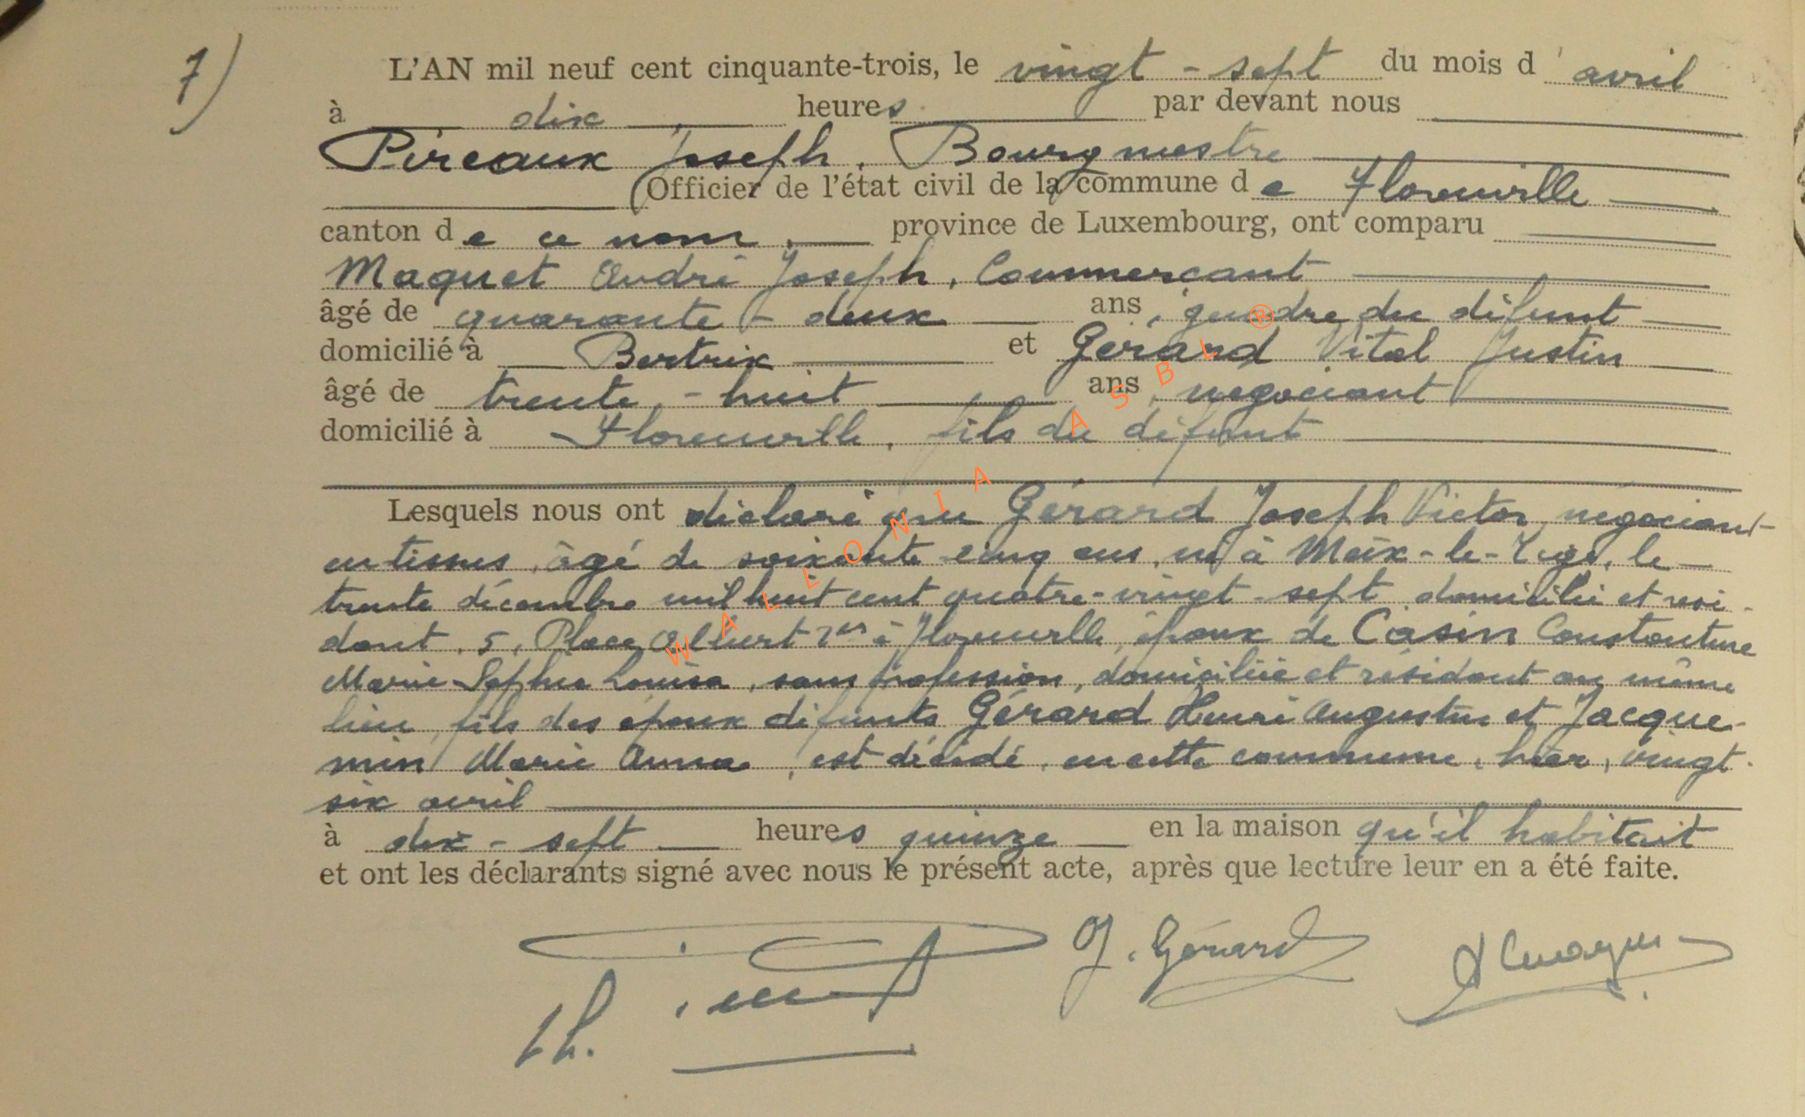 7)
L'AN mil neuf cent cinquante-trois, le vingt - sept du mois d'avril
à dix heures par devant nous
Pireaux Joseph, Bourgmestre
Officier de l'état civil de la commune de Florenville
canton de ce nom, province de Luxembourg, ont comparu
Maquet André Joseph, Commerçant
âgé de quarante - deux ans, gendre du défunt
domicilié à Bertrix et Gérard Vital Justin
âgé de trente - huit ans, négociant
domicilié à Florenville, fils du défunt
Lesquels nous ont déclaré que Gérard Joseph Victor, négociant
en tissus, âgé de soixante-cinq ans, né à Meix-le-Tige, le
trente décembre mil huit cent quatre-vingt-sept, domicilié et rési-
dant, 5, Place Albert 1er à Florenville, époux de Casin Constantine
Marie Sophie Louisa, sans profession, domiciliée et résidant au même
lieu, fils des époux défunts Gérard Henri Augustin et Jacque-
min Marie Anna, est décédé, en cette commune, hier, vingt-
six avril
à dix - sept heures quinze en la maison qu'il habitait
et ont les déclarants signé avec nous le présent acte, après que lecture leur en a été faite.
J. Gérard
WALLONIA ASBL ®